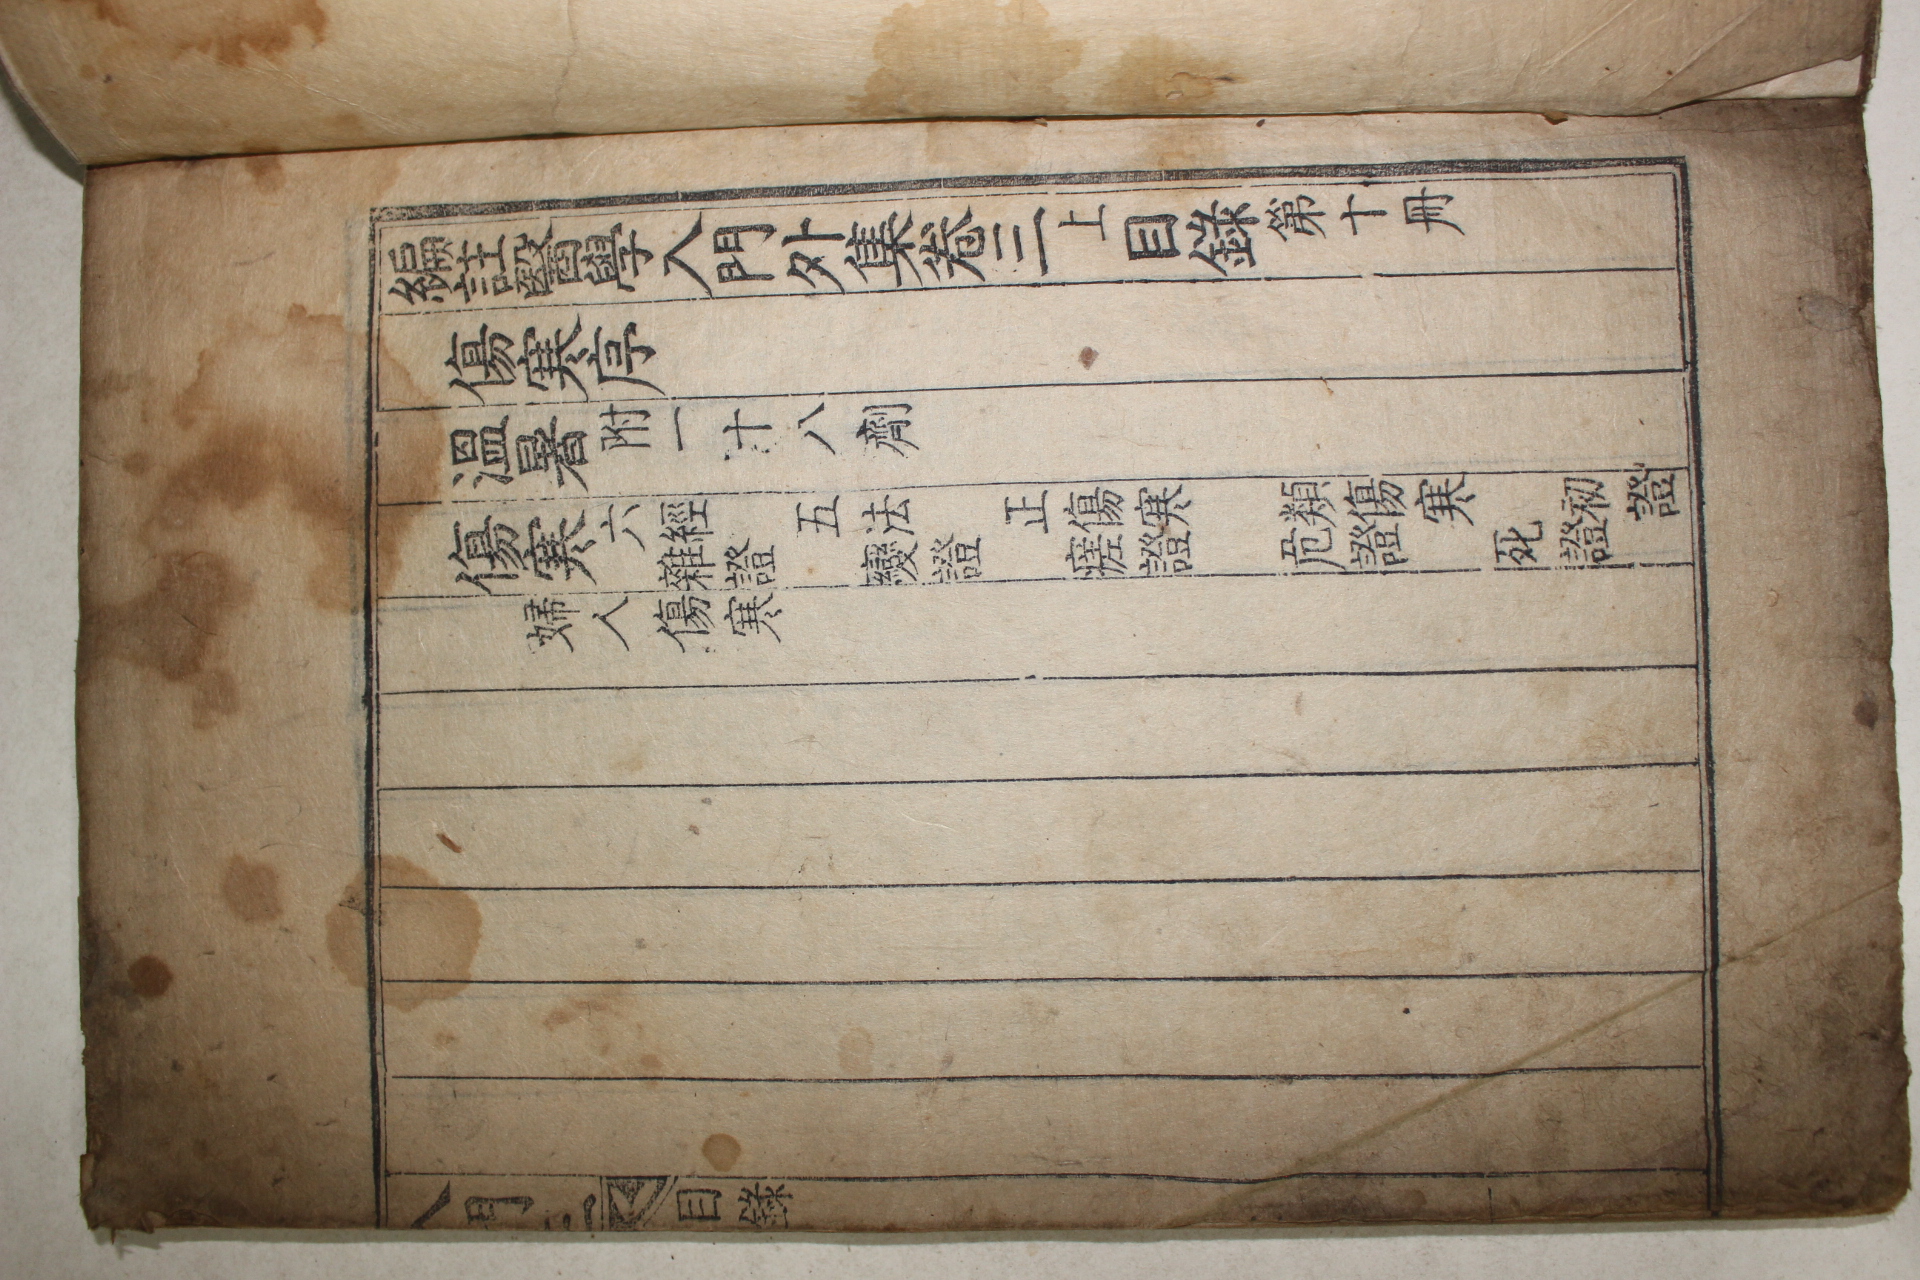 編註醫學入門外集卷三上目錄第十冊
傷寒序
溫暑附一十八劑
傷寒六經 五法 正傷寒 類傷寒 初證
雜證 變證 瘥證 危證 死證
婦人傷寒
入門 三 目錄 一